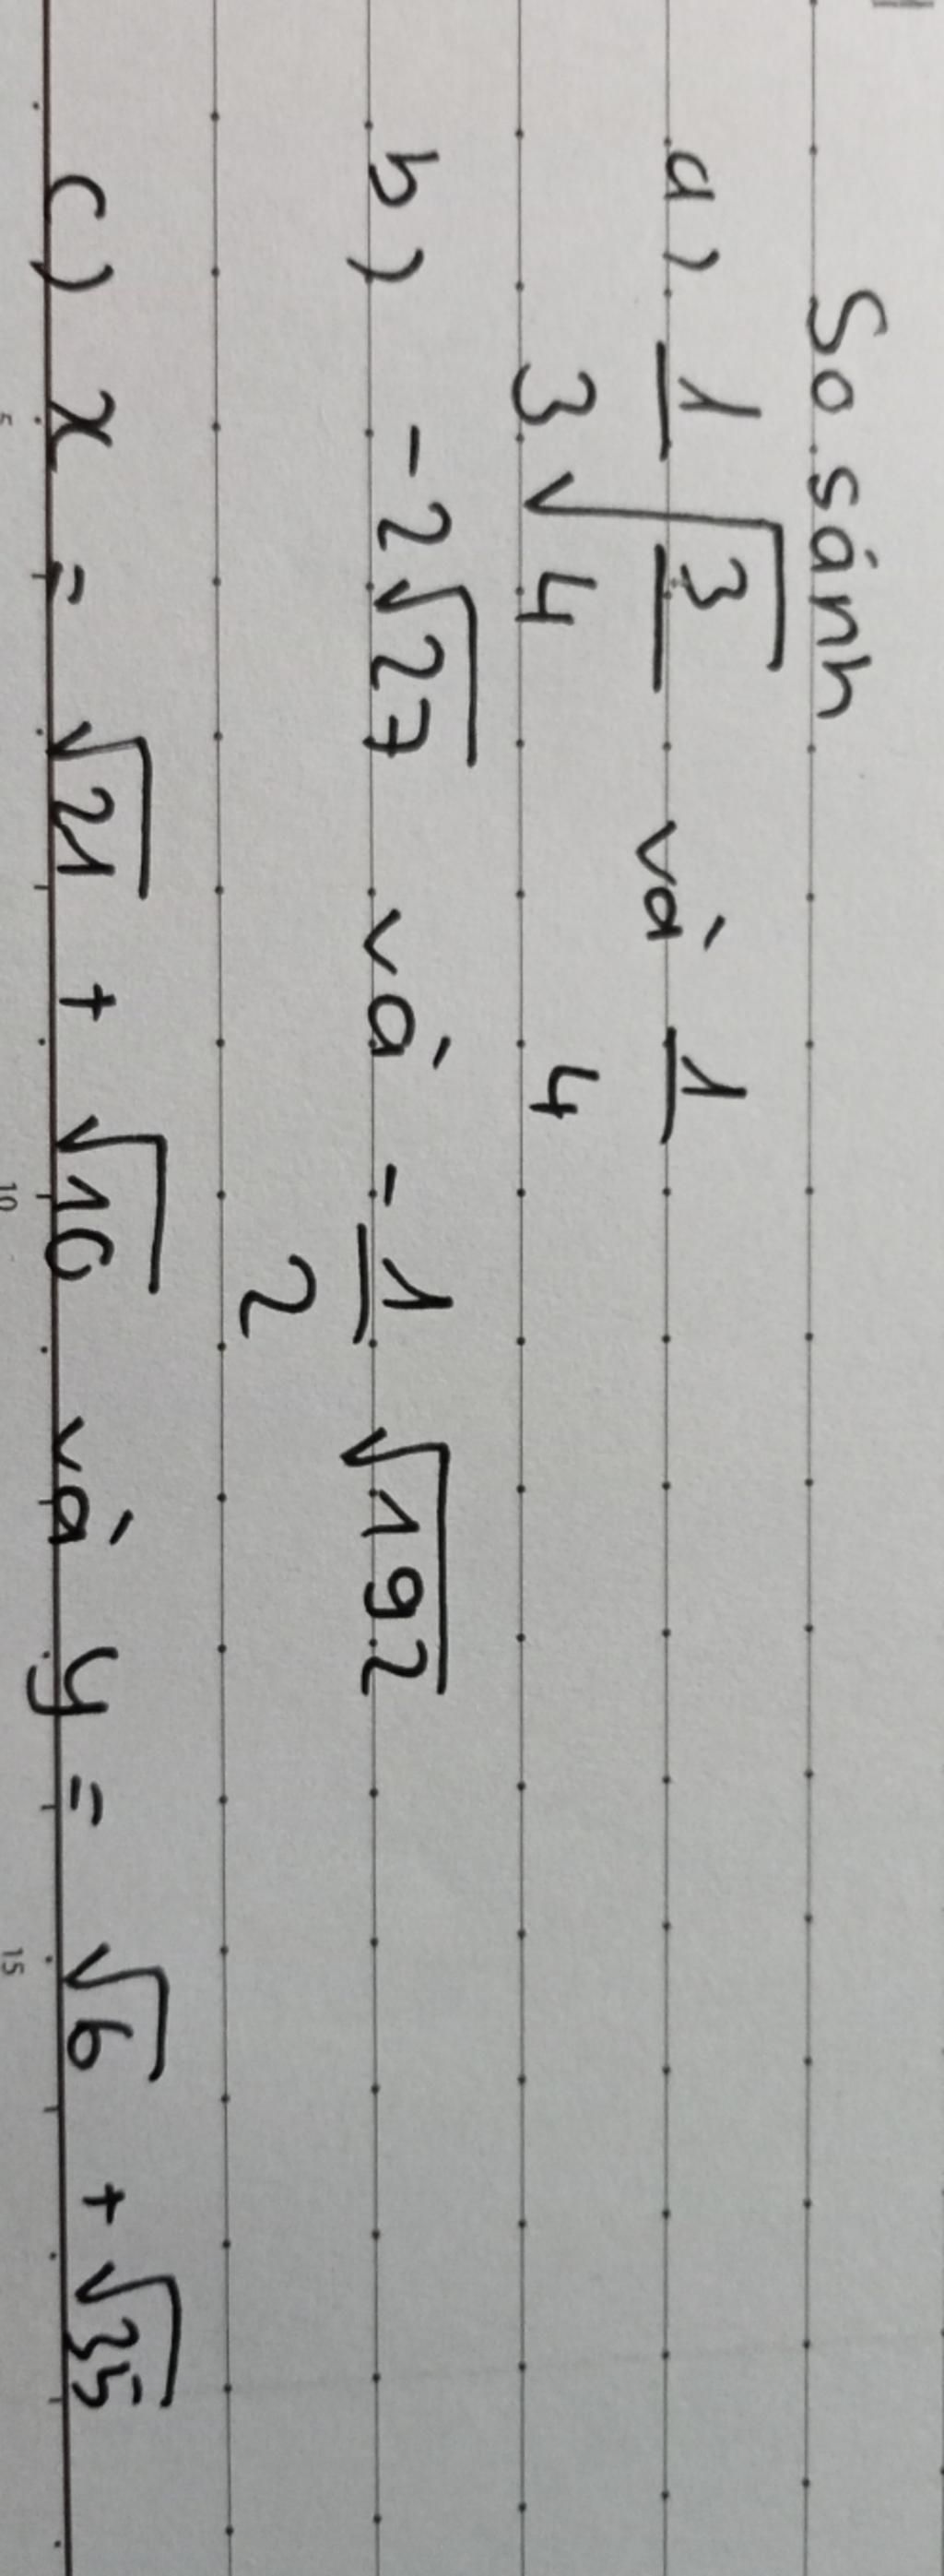 So sánh
a) 1/3 √(3/4) và 1/4
b) -2√27 và -1/2 √192
c) x = √21 + √10 và y = √6 + √35
5 10 15